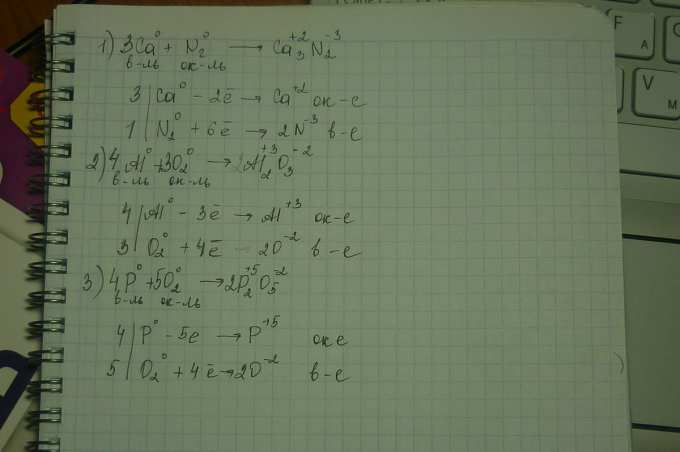 1) 3Ca⁰ + N₂⁰ → Ca₃⁺²N₂⁻³
в-ль ок-ль
3 | Ca⁰ - 2ē → Ca⁺² ок-е
1 | N₂⁰ + 6ē → 2N⁻³ в-е
2) 4Al⁰ + 3O₂⁰ → 2Al₂⁺³O₃⁻²
в-ль ок-ль
4 | Al⁰ - 3ē → Al⁺³ ок-е
3 | O₂⁰ + 4ē → 2O⁻² в-е
3) 4P⁰ + 5O₂⁰ → 2P₂⁺⁵O₅⁻²
в-ль ок-ль
4 | P⁰ - 5e → P⁺⁵ ок е
5 | O₂⁰ + 4ē → 2O⁻² в-е
F
A
V
M